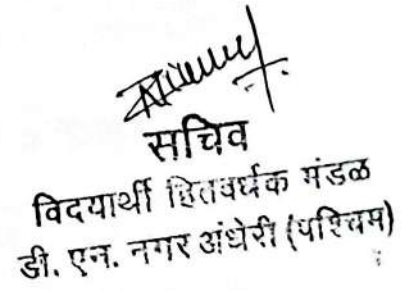 सचिव
विदयार्थी हितवर्धक मंडळ
डी. एन. नगर अंधेरी (पश्चिम)